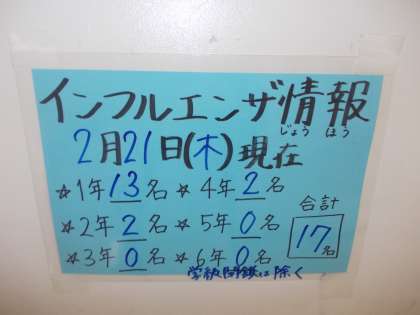 インフルエンザ情報
じょう ほう
2月21日(木)現在
☆1年13名 ☆4年2名
☆2年2名 ☆5年0名
☆3年0名 ☆6年0名
合計
17名
学級閉鎖は除く